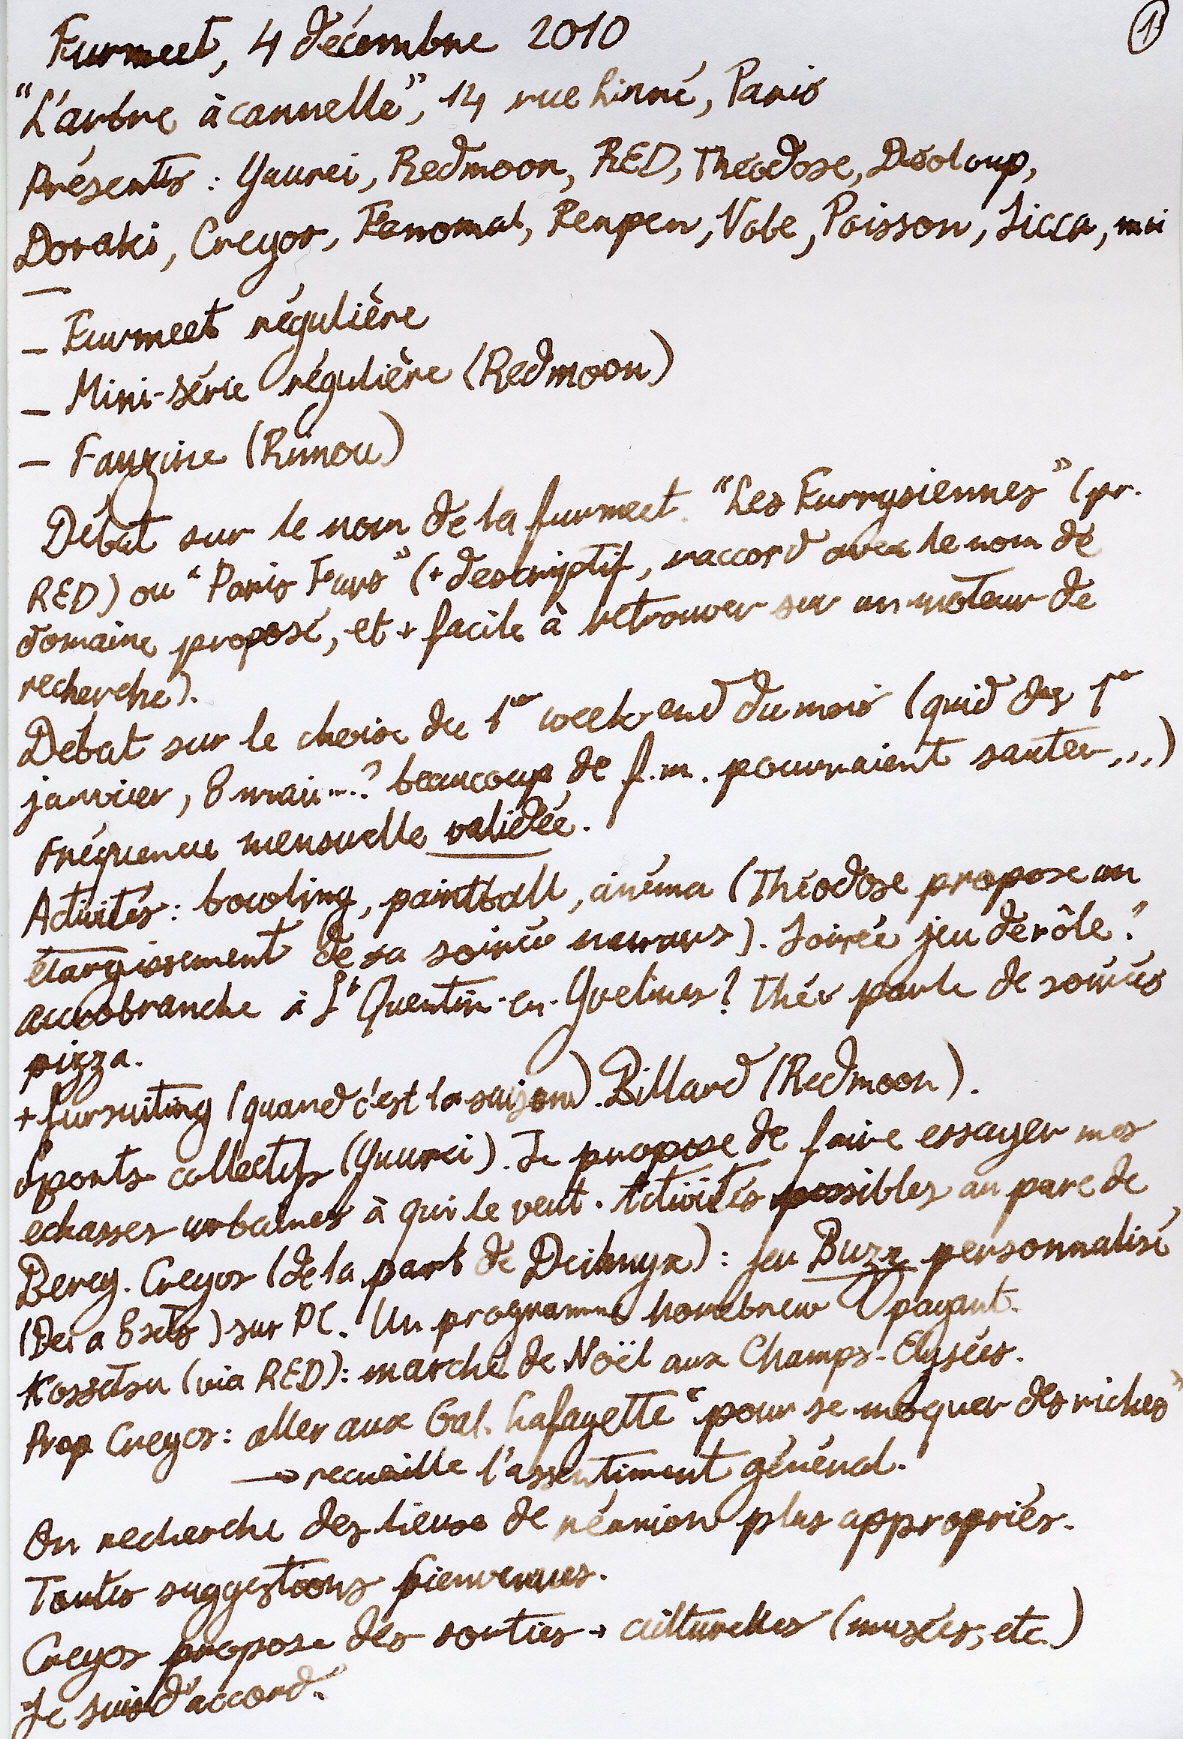 Furmeet, 4 décembre 2010
1
"L'arbre à cannelle", 14 rue Linné, Paris
Présents : Yuurei, Redmoon, RED, Théodose, Déoloup,
Doraki, Creyos, Fenomal, Penpen, Vobe, Poisson, Licca, moi
—
— Furmeet régulière
— Mini-série régulière (Redmoon)
— Fanzine (Rimou)
Débat sur le nom de la furmeet. "Les Furrysiennes" (pr.
RED) ou "Paris Furs" (+ descriptif, raccord avec le nom de
domaine proposé, et + facile à retrouver sur un moteur de
recherche).
Débat sur le choix du 1er week-end du mois (quid des 1er
janvier, 8 mai...? beaucoup de f.m. pourraient sauter...)
Fréquence mensuelle validée.
Activités : bowling, paintball, cinéma (Théodose propose un
élargissement de sa soirée nanars). Soirée jeu de rôle ?
accrobranche à St Quentin-en-Yvelines ? Théo parle de soirées
pizza.
+ fursuiting (quand c'est la saison). Billard (Redmoon).
Sports collectifs (Yuurei). Je propose de faire essayer mes
echasses urbaines à qui le veut. Activités possibles au parc de
Bercy. Creyos (de la part de ) : jeu Buzz personnalisé
sur PC. Un programme homebrew payant.
(via RED) : marché de Noël aux Champs-Elysées.
Prop Creyos : aller aux Gal. Lafayette "pour se moquer des riches"
→ recueille l'assentiment général.
On recherche des lieux de réunion plus appropriés.
Toutes suggestions bienvenues.
Creyos propose des sorties + culturelles (musées, etc.)
Je suis d'accord.